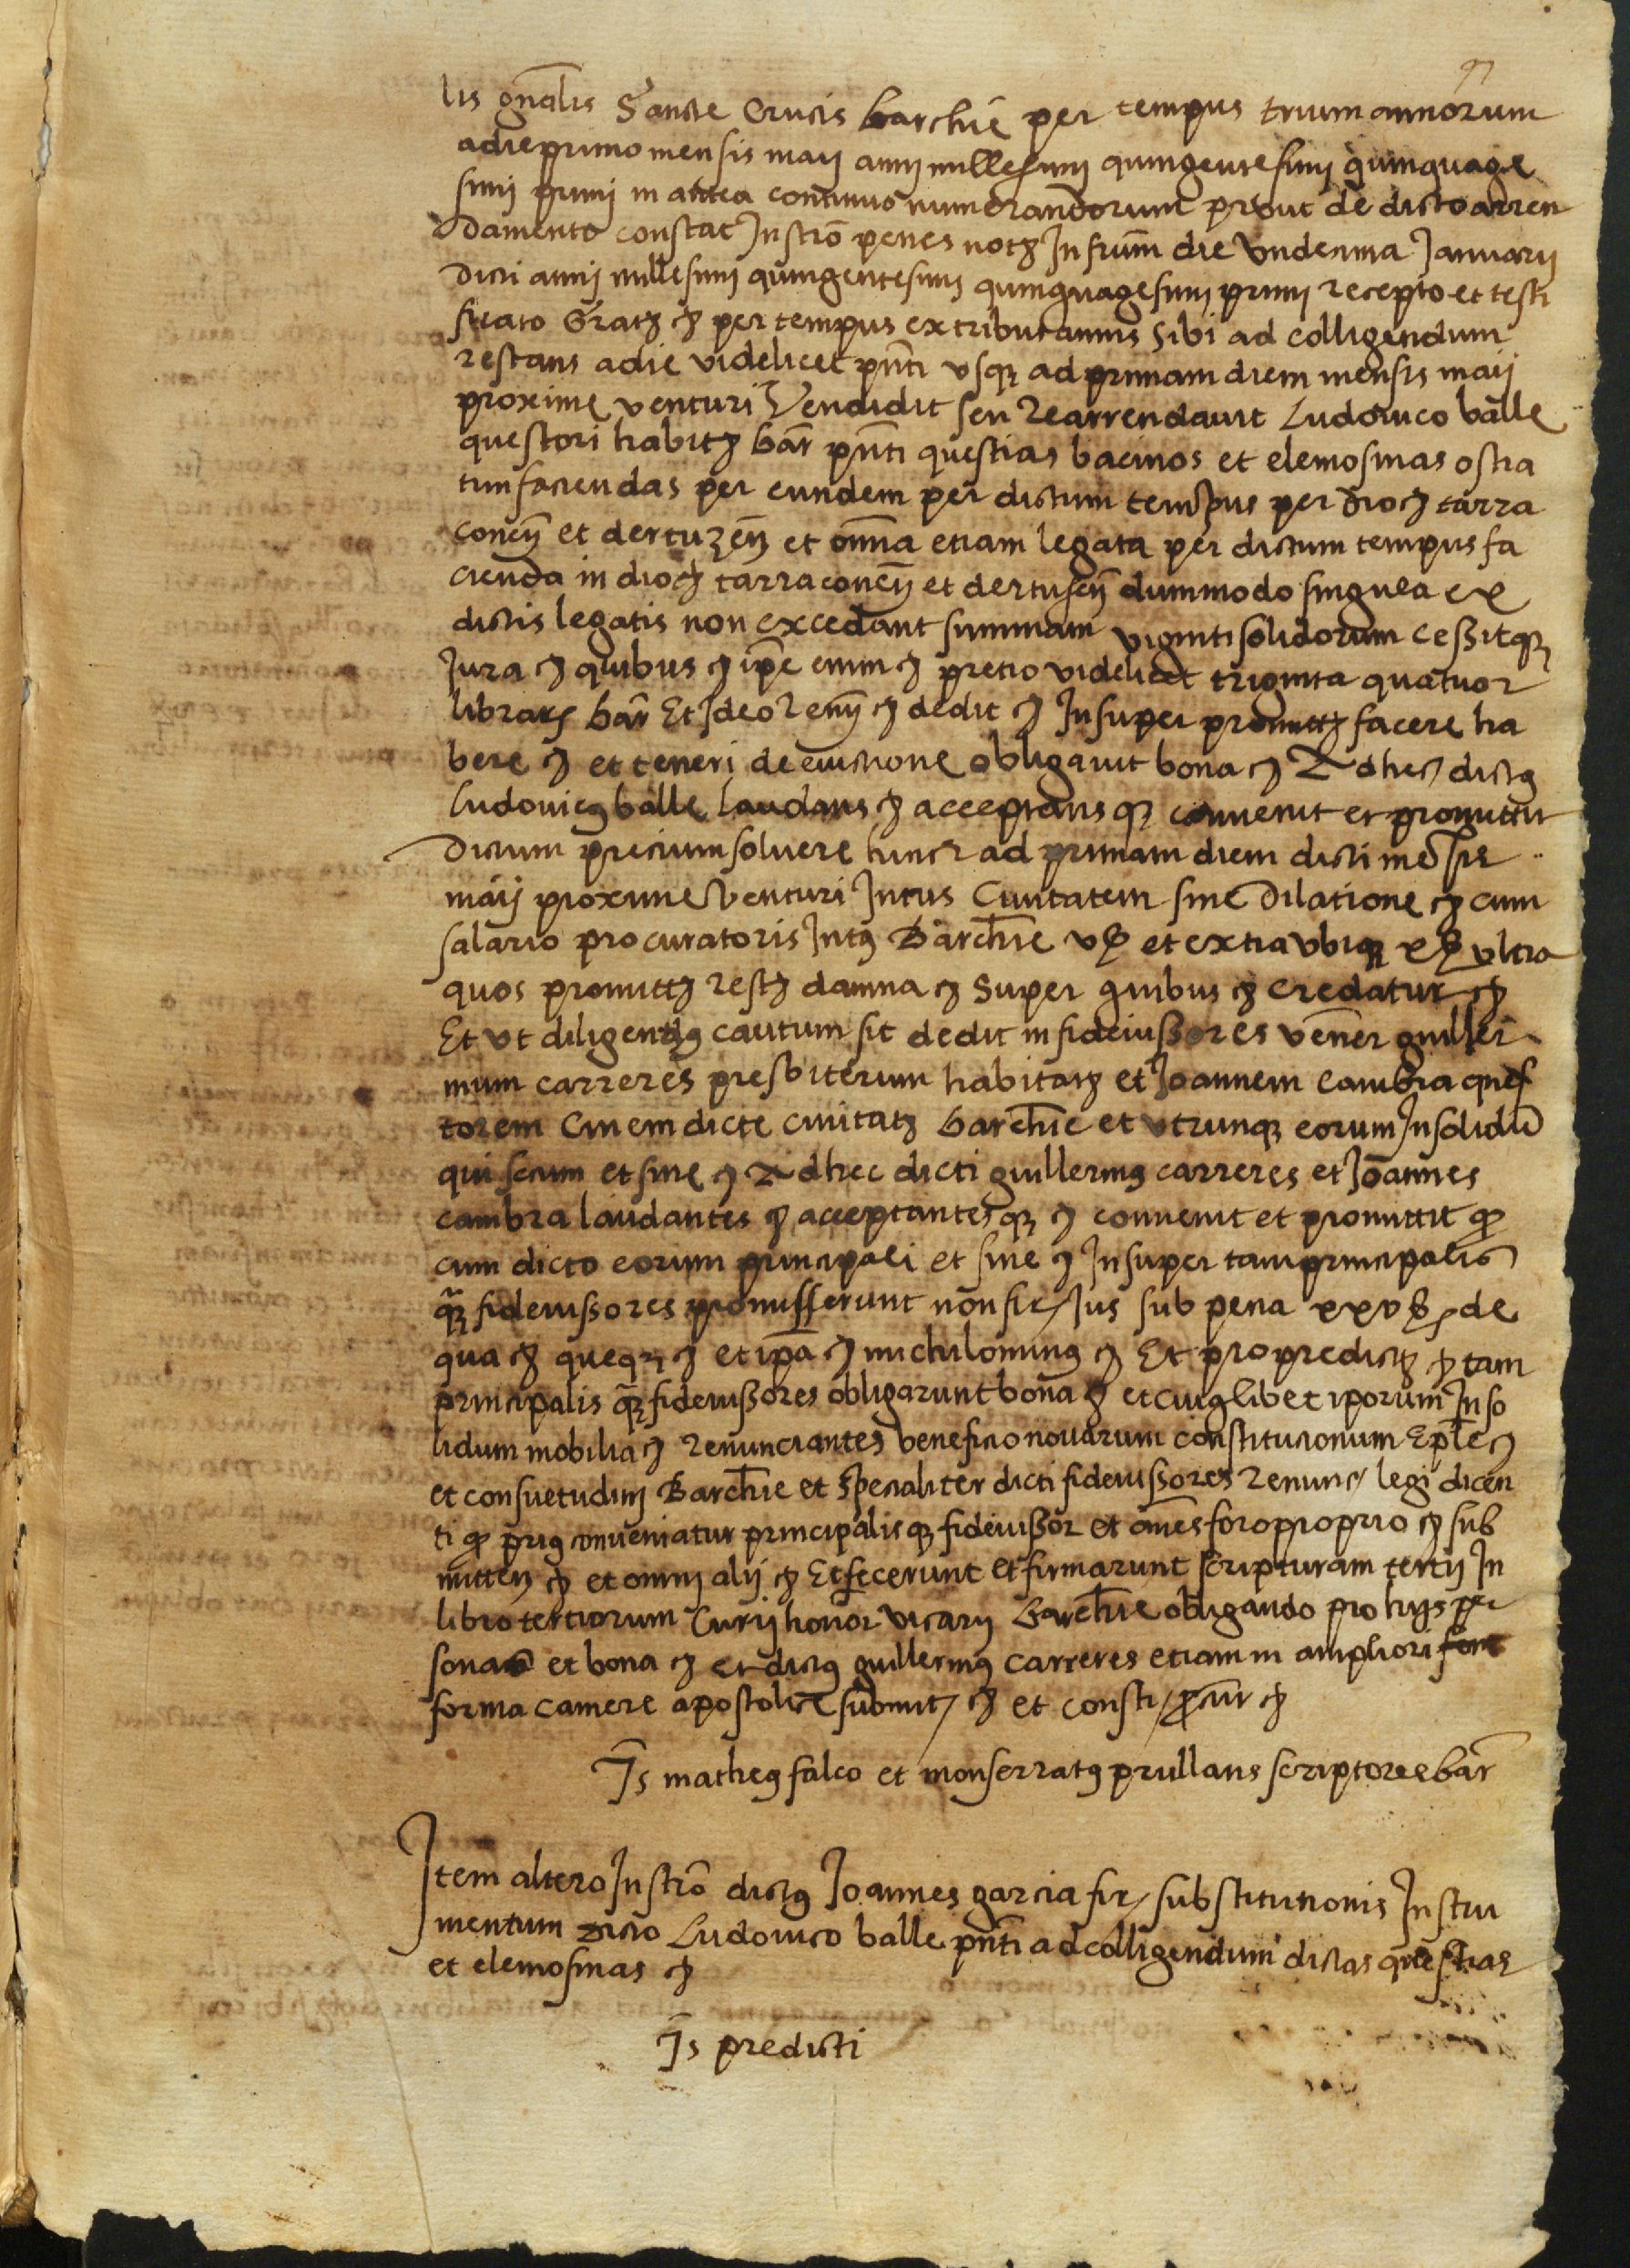 lis gnalis Sancte Crucis barchie per tempus trium annorum
a die primo mensis maij anni millesimi quingentesimi quinquage
simi primi in antea continuo numerandorum prout de dicto arren
damento constat Instro penes notm Infrum die vndecima Januarii
dicti annij millesimi quingentesimi quinquagesimi primi recepto et testi
ficato Gratis &c per tempus ex tribus annis sibi ad colligendum
restans a die videlicet pnti vsque ad primam diem mensis maij
proxime venturi Vendidit seu Rearrendauit Ludouico balle
questori habit bar pnti questias bacinos et elemosinas ostia
tim faciendas per eundem per dictum tempus per dioc tarra
conen et dertuzen et omnia etiam legata per dictum tempus fa
cienda in dioc tarraconen et dertusen dummodo singula ex
dictis legatis non excedant summam viginti solidorum cessitque
Jura &c quibus &c ipe enim &c pretio videlicet triginta quatuor
librars bar Et Ideo Renun &c dedit &c Insuper promitt facere ha
bere &c et teneri de euictione obligauit bona &c Ad hec dictus
Ludouicus balle laudans &c acceptans que conuenit et promittit
dictum precium soluere hinc ad primam diem dicti mensis
maij proxime Venturi Intus Ciuitatem sine dilatione &c cum
salario procuratoris Intus Barchie vs et extra vbique xs vltra
quos promitt rest damna &c Super quibus &c credatur &c
Et vt diligentius cautum sit dedit in fideiussores vener guiller
mum carreres presbiterum habitat et Joannem cambra ques
torem Ciuem dicte ciuitat barchie et vtrunque eorum Insolidum
qui secum et sine &c Ad hec dicti guillermus carreres et Joannes
cambra laudantes &c acceptantesque &c conuenit et promittit quod
cum dicto eorum principali et sine &c Insuper tam principalis
quam fideiussores promisserunt non fir Jus sub pena xxv s de
qua &c queque &c et ipa &c nichilominus &c Et pro predictis &c tam
principalis quam fideiussores obligarunt bona &c et cuiuslibet iporum Inso
lidum mobilia &c Renunciantes beneficio nouarum constitucionum Eple &c
et consuetudini Barchie et specialiter dicti fideiussores Renunc legi dicen
ti quod prius conueniatur principalis que fideiussor et omes foro proprio &c sub
mitten &c et omni alij &c Et fecerunt et firmarunt scripturam tertij In
libro tertiorum Curij honor vicarij Barchie obligando pro hijs per
sonas et bona &c Et dictus guillermus carreres etiam in ampliori form
forma camere apostolice submit &c et consti procur &c
Ts matheus falco et monserratus prullans scriptores bar
Item altero Instro dictus Joannes garcia fir substitutionis Instru
mentum dicto Ludouico balle pnti ad colligendum dictas questias
et elemosinas &c
Ts predicti